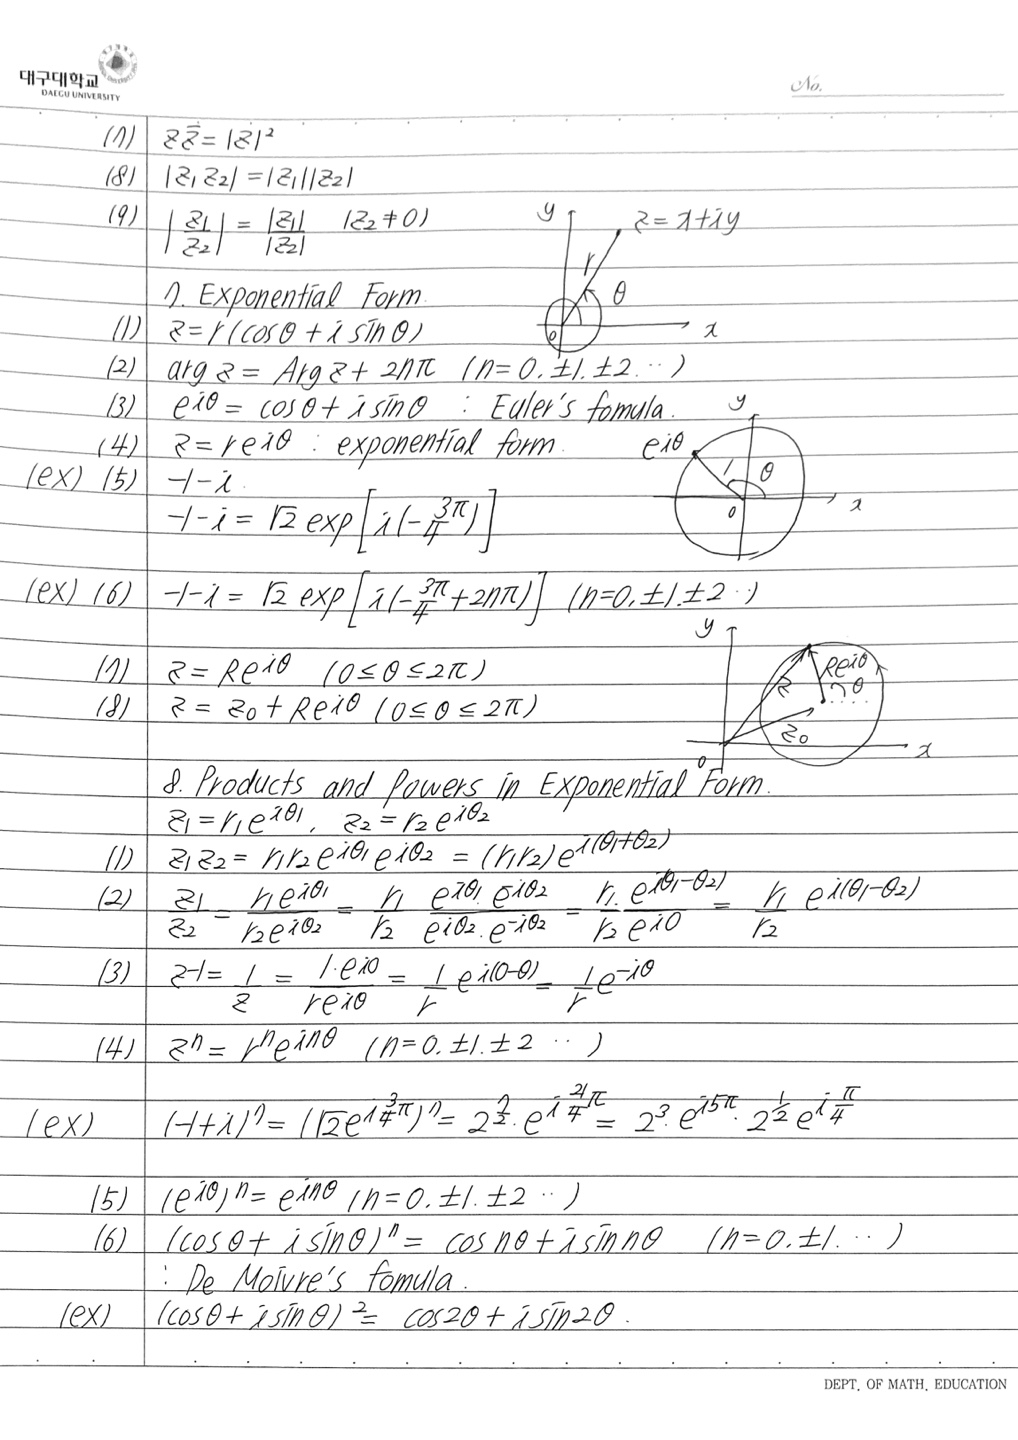 대구대학교
DAEGU UNIVERSITY
No.
(7) z z̄ = |z|²
(8) |z₁ z₂| = |z₁||z₂|
(9) |z₁/z₂| = |z₁|/|z₂| (z₂ ≠ 0)
y z = x+iy
r θ
0 x
7. Exponential Form.
(1) z = r(cosθ + i sinθ)
(2) arg z = Arg z + 2nπ (n = 0. ±1. ±2 ··)
(3) e^{iθ} = cosθ + i sinθ : Euler's fomula.
(4) z = re^{iθ} : exponential form.
y
e^{iθ} 1 θ
0 x
(ex) (5) -1-i.
-1-i = √2 exp[i(-3π/4)]
(ex) (6) -1-i = √2 exp[i(-3π/4 + 2nπ)] (n=0. ±1. ±2 ··)
y
(7) z = Re^{iθ} (0 ≤ θ ≤ 2π)
(8) z = z₀ + Re^{iθ} (0 ≤ θ ≤ 2π)
Re^{iθ}
z θ
z₀
0 x
8. Products and Powers in Exponential Form.
z₁ = r₁e^{iθ₁}, z₂ = r₂e^{iθ₂}
(1) z₁z₂ = r₁r₂e^{iθ₁}e^{iθ₂} = (r₁r₂)e^{i(θ₁+θ₂)}
(2) z₁/z₂ = r₁e^{iθ₁}/r₂e^{iθ₂} = r₁/r₂ e^{iθ₁}.e^{-iθ₂}/e^{iθ₂}.e^{-iθ₂} = r₁/r₂ . e^{i(θ₁-θ₂)}/e^{i0} = r₁/r₂ e^{i(θ₁-θ₂)}
(3) z⁻¹ = 1/z = 1·e^{i0}/re^{iθ} = 1/r e^{i(0-θ)} = 1/r e^{-iθ}
(4) zⁿ = rⁿe^{inθ} (n=0. ±1. ±2 ··)
(ex) (-1+i)⁷ = (√2e^{i 3/4 π})⁷ = 2^{7/2}·e^{i 21/4 π} = 2³·e^{i5π}·2^{1/2}e^{i π/4}
(5) (e^{iθ})ⁿ = e^{inθ} (n=0. ±1. ±2 ··)
(6) (cosθ + i sinθ)ⁿ = cos nθ + i sin nθ (n=0. ±1. ··)
: De Moivre's fomula.
(ex) (cosθ + i sinθ)² = cos2θ + i sin2θ.
DEPT. OF MATH. EDUCATION